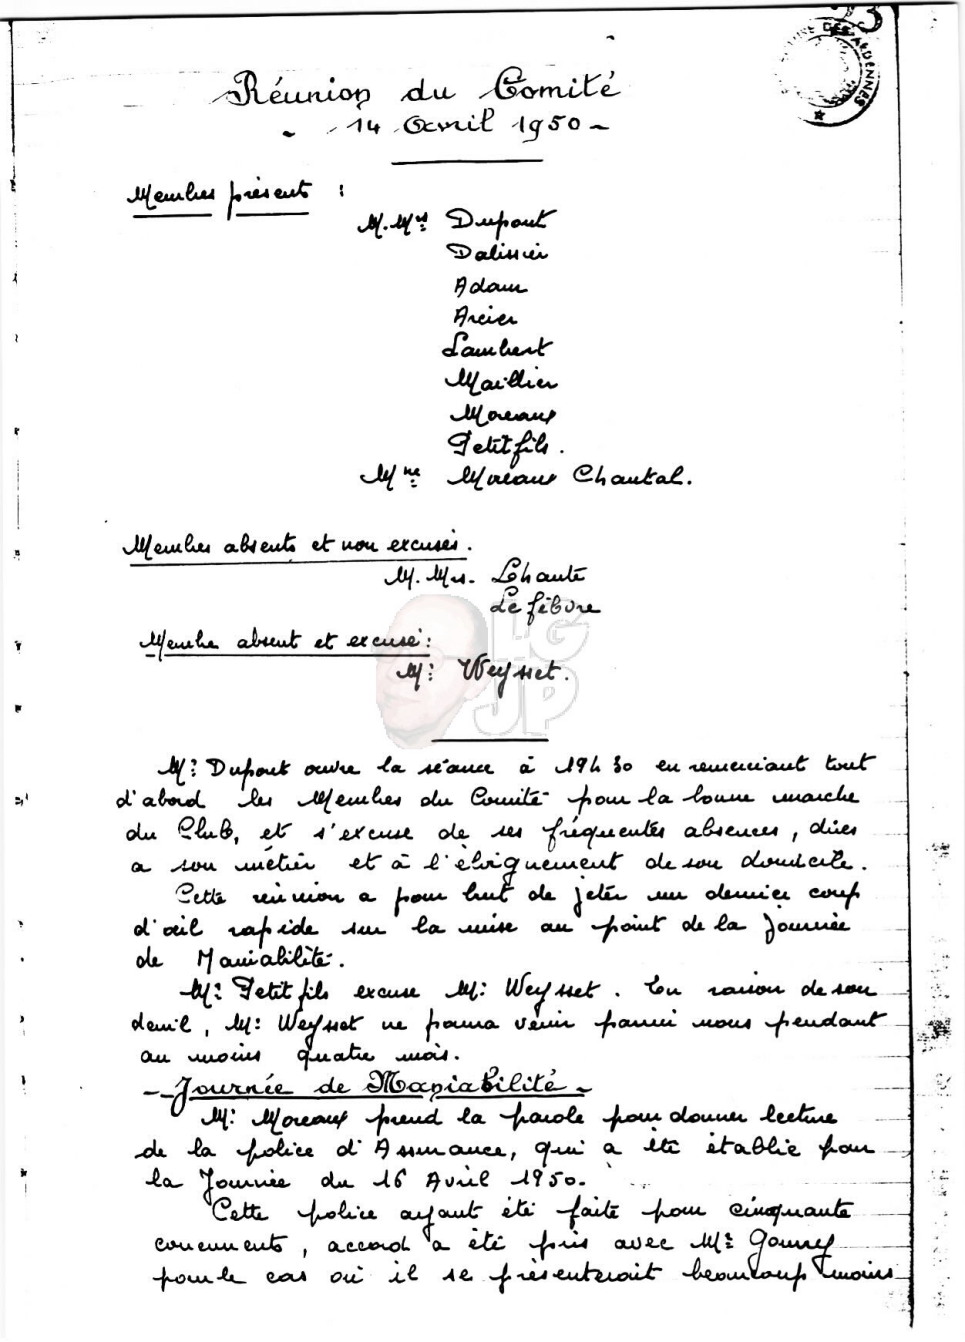 Réunion du Comité
- 14 Avril 1950 -
Membres présents :
M.Mrs Dupont
Dalissier
Adam
Arcier
Lambert
Maillier
Moreaux
Petitfils.
Mme Moreaux Chantal.
Membres absents et non excusés.
M.Mrs. Lehauté
Lefébvre
Membre absent et excusé :
Mr Weysset.
LG
JP
Mr Dupont ouvre la séance à 19h30 en remerciant tout
d'abord les Membres du Comité pour la bonne marche
du Club, et s'excuse de ses fréquentes absences, dûes
a son métier et à l'éloignement de son domicile.
Cette réunion a pour but de jeter un dernier coup
d'œil rapide sur la mise au point de la Journée
de Maniabilité.
Mr Petitfils excuse Mr Weysset. En raison de son
deuil, Mr Weysset ne pourra venir parmi nous pendant
au moins quatre mois.
- Journée de Maniabilité -
Mr Moreaux prend la parole pour donner lecture
de la police d'Assurance, qui a été établie pour
la Journée du 16 Avril 1950.
Cette police ayant été faite pour cinquante
concurrents, accord a été pris avec Mr
pour le cas où il se présenterait beaucoup moins